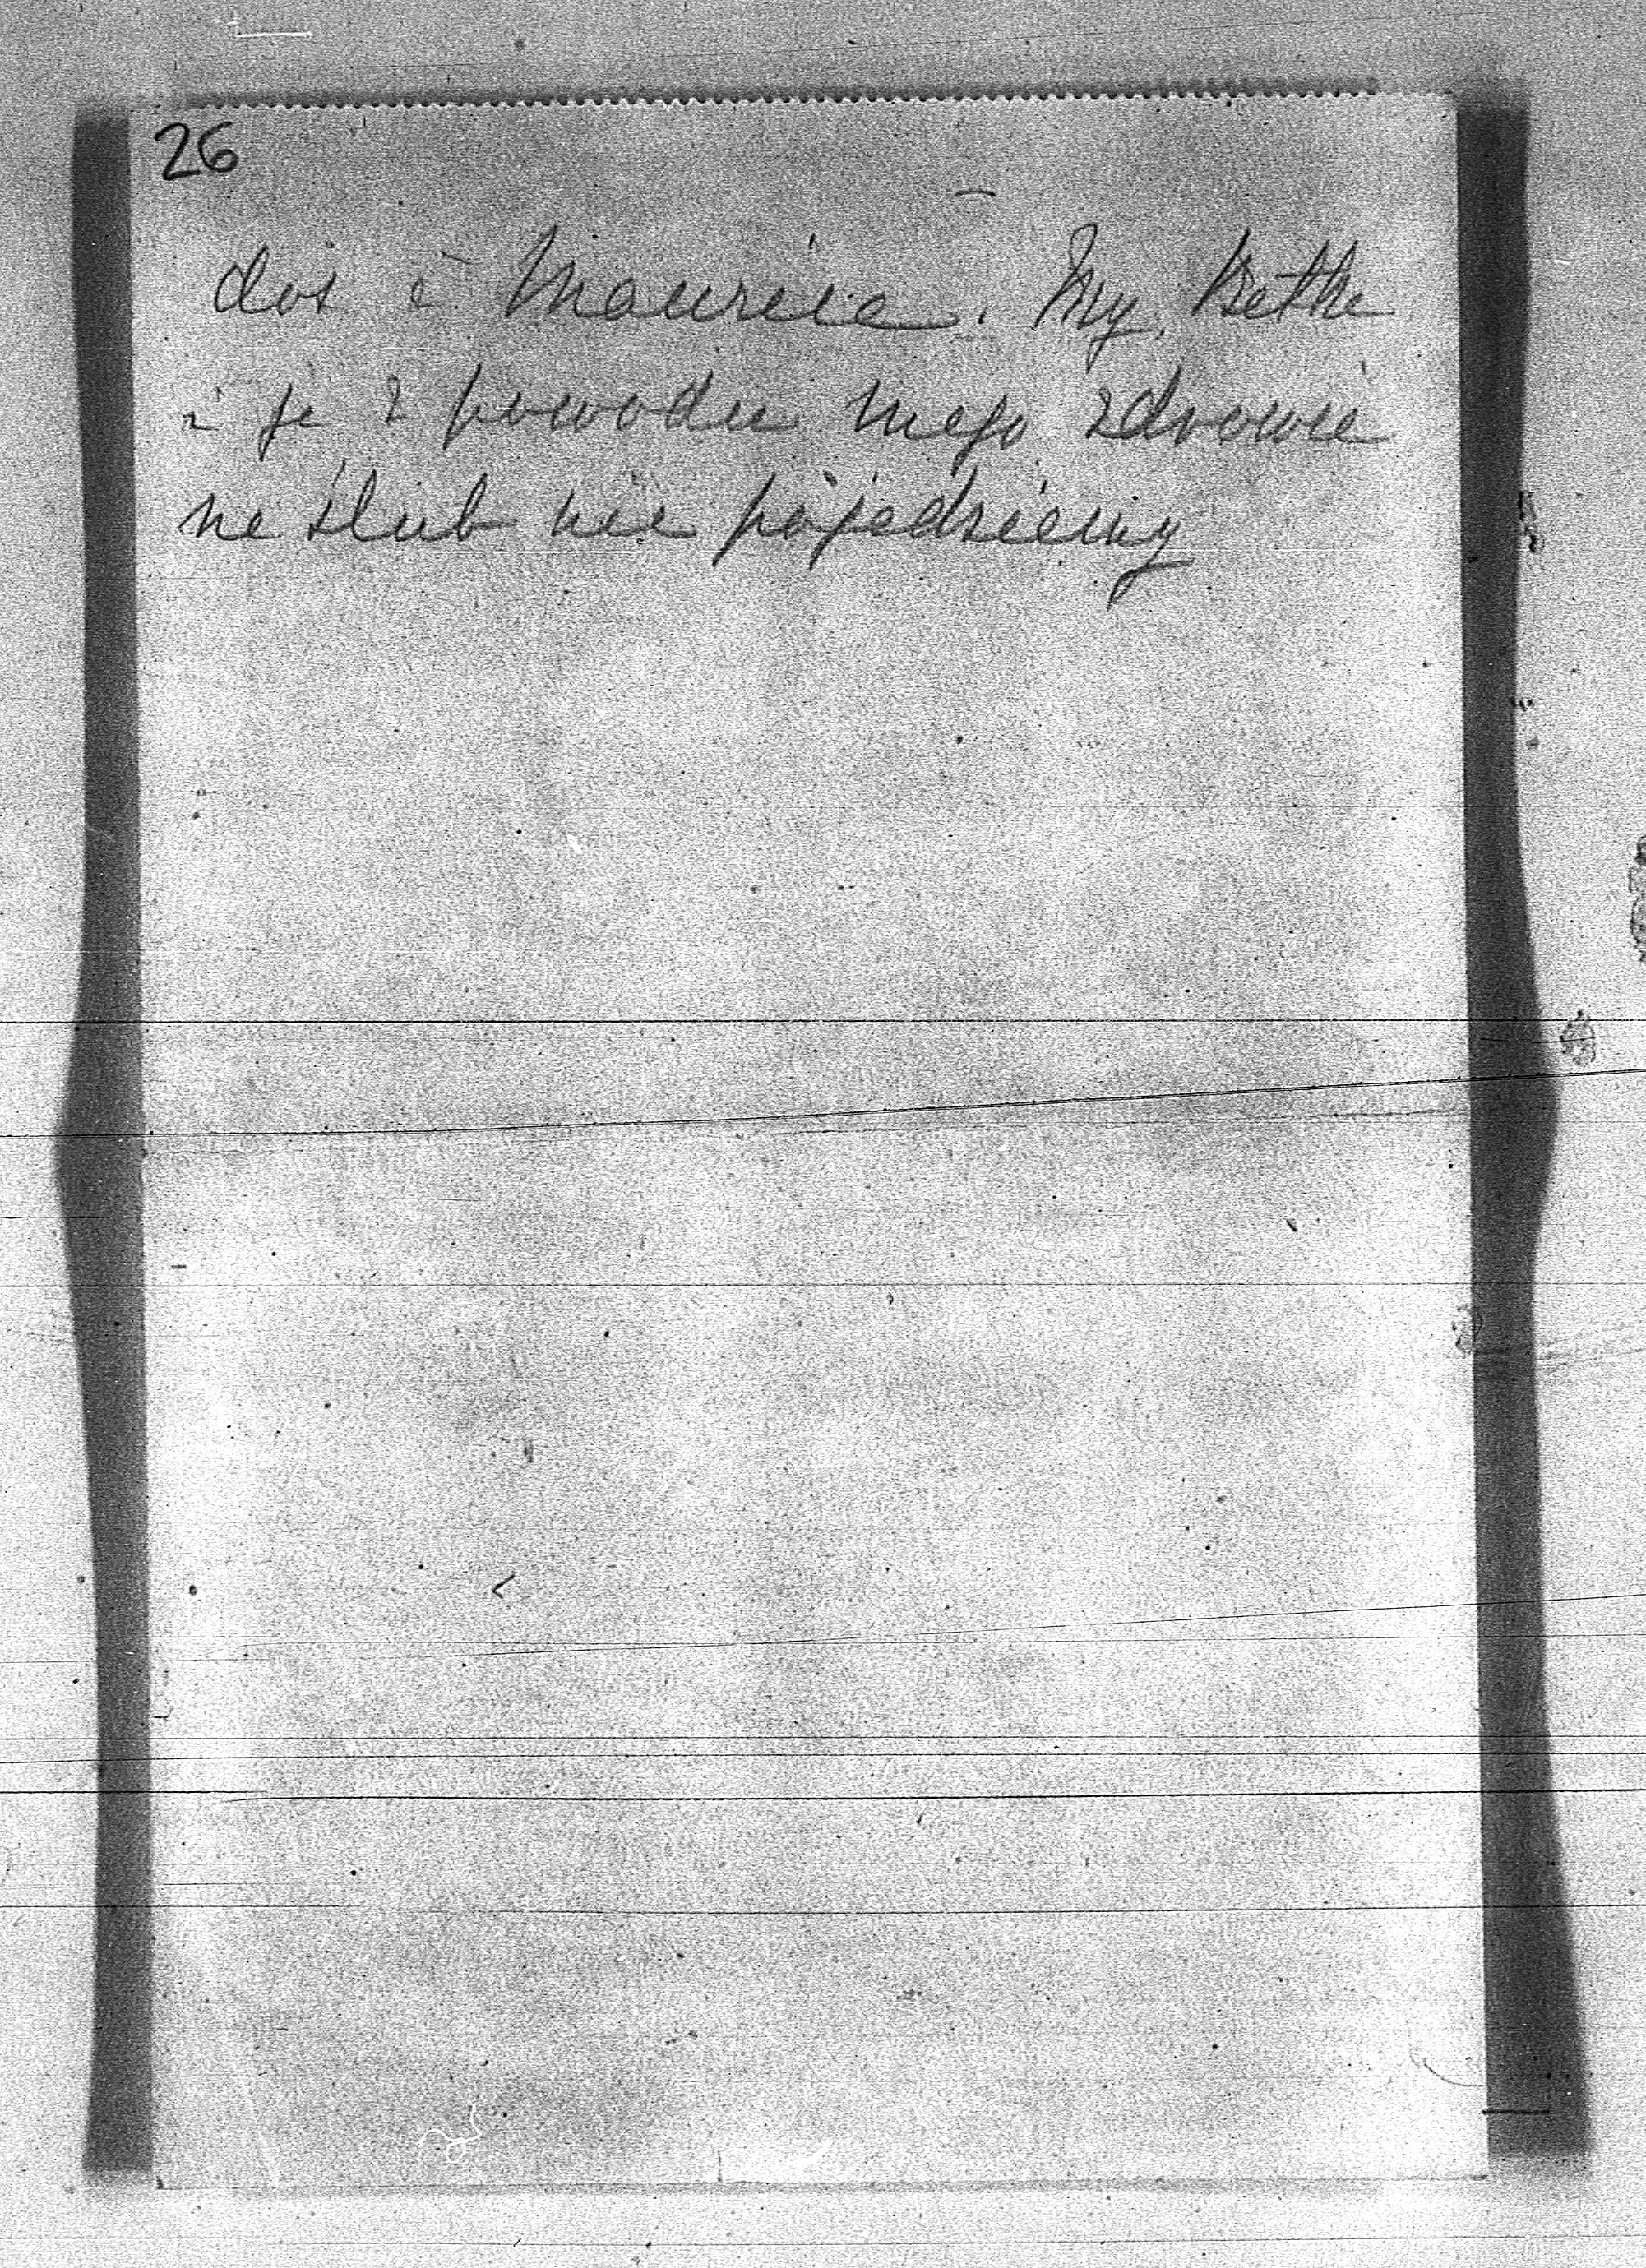 26
dos i Maurice. My, Bethe
i ja z powodu mego zdrowia
na ślub nie pojedziemy